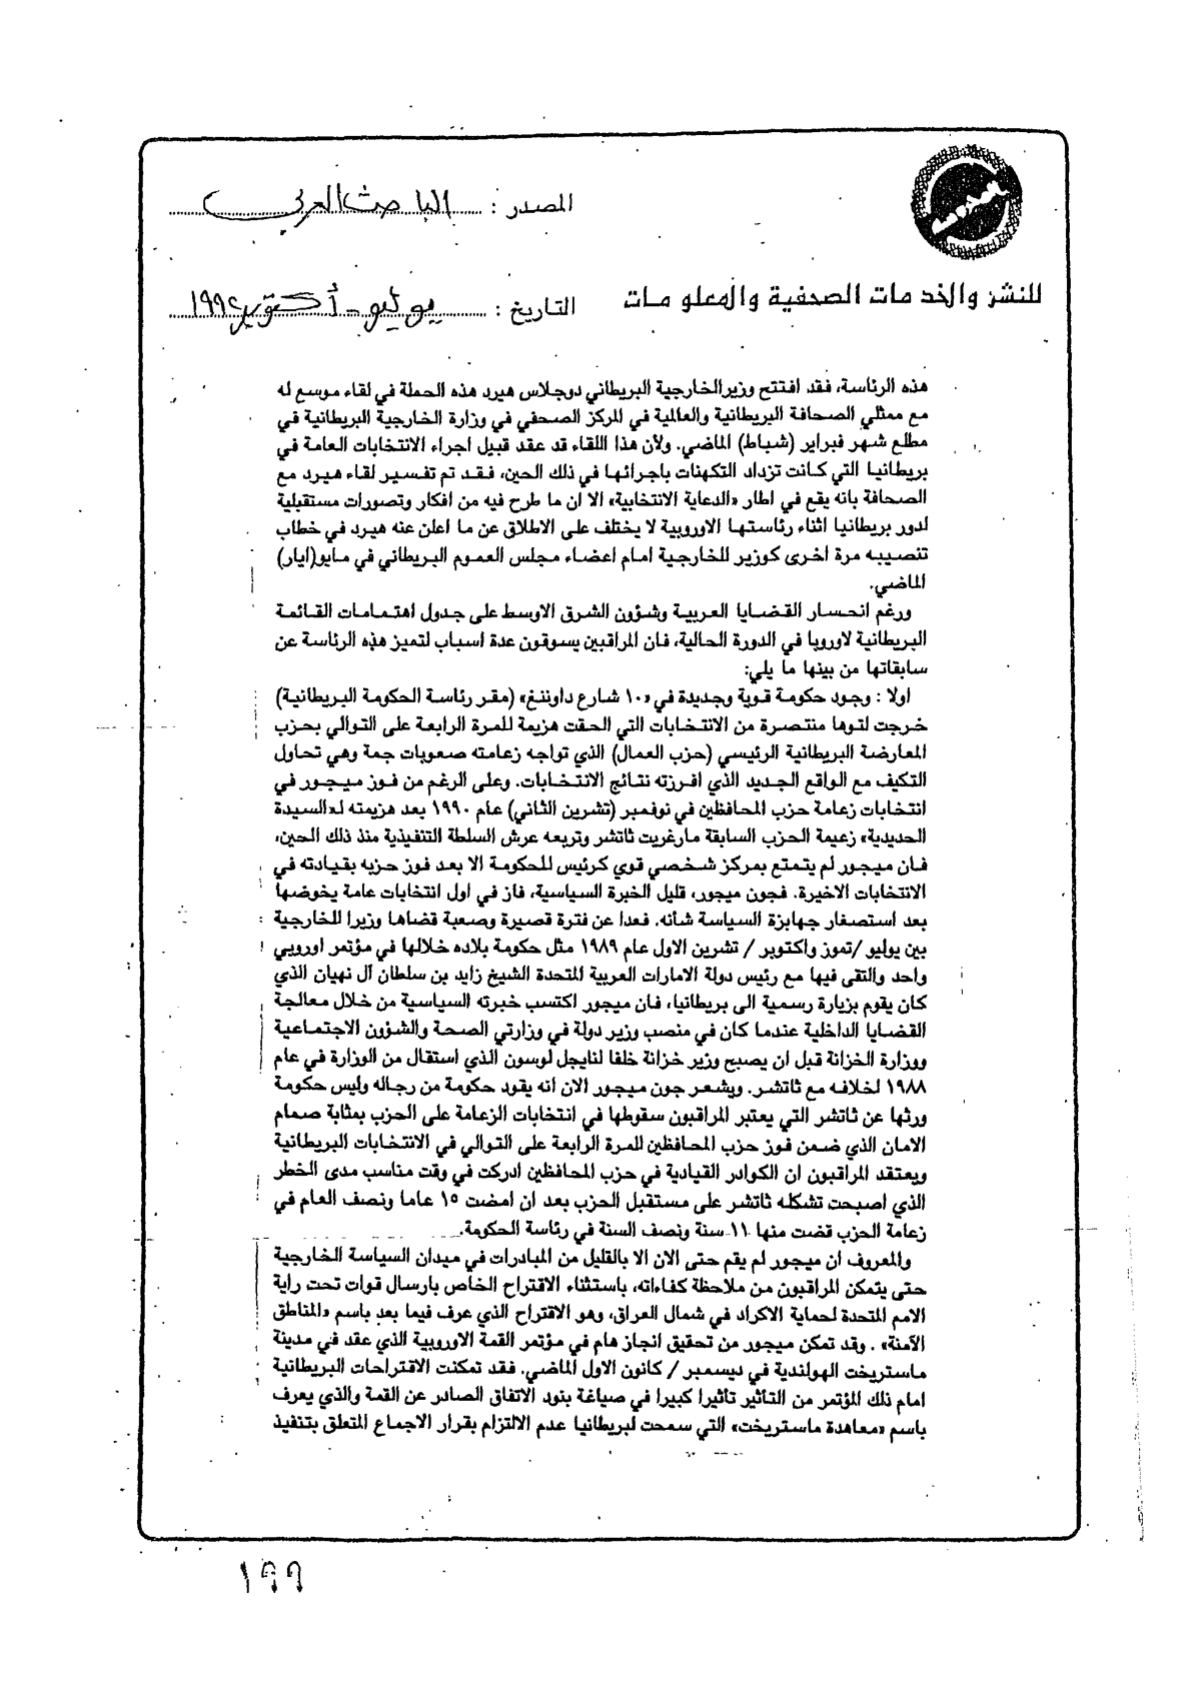 المصدر : الباحث العربي
للنشر والخدمات الصحفية والمعلومات
التاريخ : يوليو - أكتوبر ١٩٩٢
هذه الرئاسة، فقد افتتح وزير الخارجية البريطاني دوجلاس هيرد هذه الحملة في لقاء موسع له
مع ممثلي الصحافة البريطانية والعالمية في المركز الصحفي في وزارة الخارجية البريطانية في
مطلع شهر فبراير (شباط) الماضي. ولأن هذا اللقاء قد عقد قبيل اجراء الانتخابات العامة في
بريطانيا التي كانت تزداد التكهنات باجرائها في ذلك الحين، فقد تم تفسير لقاء هيرد مع
الصحافة بانه يقع في اطار «الدعاية الانتخابية» الا ان ما طرح فيه من افكار وتصورات مستقبلية
لدور بريطانيا اثناء رئاستها الاوروبية لا يختلف على الاطلاق عن ما اعلن عنه هيرد في خطاب
تنصيبه مرة اخرى كوزير للخارجية امام اعضاء مجلس العموم البريطاني في مايو(ايار)
الماضي.
ورغم انحسار القضايا العربية وشؤون الشرق الاوسط على جدول اهتمامات القائمة
البريطانية لاوروبا في الدورة الحالية، فان المراقبين يسوقون عدة اسباب لتميز هذه الرئاسة عن
سابقاتها من بينها ما يلي:
اولا : وجود حكومة قوية وجديدة في «١٠ شارع داوننغ» (مقر رئاسة الحكومة البريطانية)
خرجت لتوها منتصرة من الانتخابات التي الحقت هزيمة للمرة الرابعة على التوالي بحزب
المعارضة البريطانية الرئيسي (حزب العمال) الذي تواجه زعامته صعوبات جمة وهي تحاول
التكيف مع الواقع الجديد الذي افرزته نتائج الانتخابات. وعلى الرغم من فوز ميجور في
انتخابات زعامة حزب المحافظين في نوفمبر (تشرين الثاني) عام ١٩٩٠ بعد هزيمته لـ«السيدة
الحديدية» زعيمة الحزب السابقة مارغريت ثاتشر وتربعه عرش السلطة التنفيذية منذ ذلك الحين،
فان ميجور لم يتمتع بمركز شخصي قوي كرئيس للحكومة الا بعد فوز حزبه بقيادته في
الانتخابات الاخيرة. فجون ميجور، قليل الخبرة السياسية، فاز في اول انتخابات عامة يخوضها
بعد استصغار جهابزة السياسة شأنه. فعدا عن فترة قصيرة وصعبة قضاها وزيرا للخارجية
بين يوليو /تموز واكتوبر / تشرين الاول عام ١٩٨٩ مثل حكومة بلاده خلالها في مؤتمر اوروبي
واحد والتقى فيها مع رئيس دولة الامارات العربية المتحدة الشيخ زايد بن سلطان آل نهيان الذي
كان يقوم بزيارة رسمية الى بريطانيا، فان ميجور اكتسب خبرته السياسية من خلال معالجة
القضايا الداخلية عندما كان في منصب وزير دولة في وزارتي الصحة والشؤون الاجتماعية
ووزارة الخزانة قبل ان يصبح وزير خزانة خلفا لنايجل لوسون الذي استقال من الوزارة في عام
١٩٨٨ لخلافه مع ثاتشر. ويشعر جون ميجور الان انه يقود حكومة من رجاله وليس حكومة
ورثها عن ثاتشر التي يعتبر المراقبون سقوطها في انتخابات الزعامة على الحزب بمثابة صمام
الامان الذي ضمن فوز حزب المحافظين للمرة الرابعة على التوالي في الانتخابات البريطانية
ويعتقد المراقبون ان الكوادر القيادية في حزب المحافظين ادركت في وقت مناسب مدى الخطر
الذي اصبحت تشكله ثاتشر على مستقبل الحزب بعد ان امضت ١٥ عاما ونصف العام في
زعامة الحزب قضت منها ١١ سنة ونصف السنة في رئاسة الحكومة.
والمعروف ان ميجور لم يقم حتى الان الا بالقليل من المبادرات في ميدان السياسة الخارجية
حتى يتمكن المراقبون من ملاحظة كفاءاته، باستثناء الاقتراح الخاص بارسال قوات تحت راية
الامم المتحدة لحماية الاكراد في شمال العراق، وهو الاقتراح الذي عرف فيما بعد باسم «المناطق
الآمنة» . وقد تمكن ميجور من تحقيق انجاز هام في مؤتمر القمة الاوروبية الذي عقد في مدينة
ماستريخت الهولندية في ديسمبر / كانون الاول الماضي. فقد تمكنت الاقتراحات البريطانية
امام ذلك المؤتمر من التأثير تأثيرا كبيرا في صياغة بنود الاتفاق الصادر عن القمة والذي يعرف
باسم «معاهدة ماستريخت» التي سمحت لبريطانيا عدم الالتزام بقرار الاجماع المتعلق بتنفيذ
١٩٩